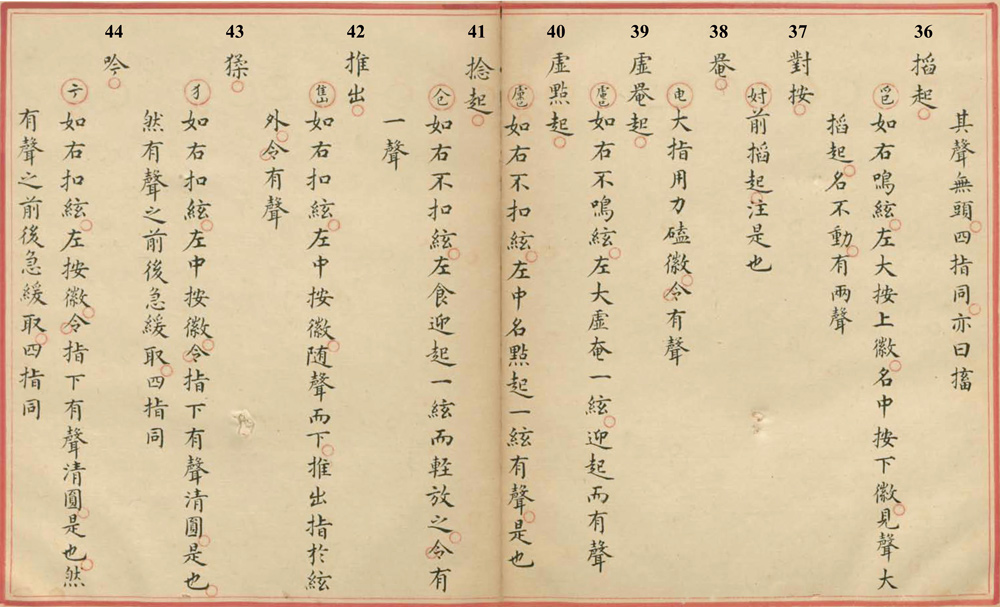 其聲無頭四指同亦曰搐
36
搯起
如右鳴絃左大按上徽名中按下徽見聲大
搯起名不動有兩聲
37
對按
前搯起注是也
38
罨
电大指用力磕徽令有聲
39
虛罨起
如右不鳴絃左大虛奄一絃迎起而有聲
40
虛點起
如右不扣絃左中名點起一絃有聲是也
41
捻起
如右不扣絃左食迎起一絃而輕放之令有
一聲
42
推出
如右扣絃左中按徽随聲而下推出指於絃
外令有聲
43
猱
犭如右扣絃左中按徽令指下有聲清圓是也
然有聲之前後急緩取四指同
44
吟
如右扣絃左按徽令指下有聲清圓是也然
有聲之前後急緩取四指同